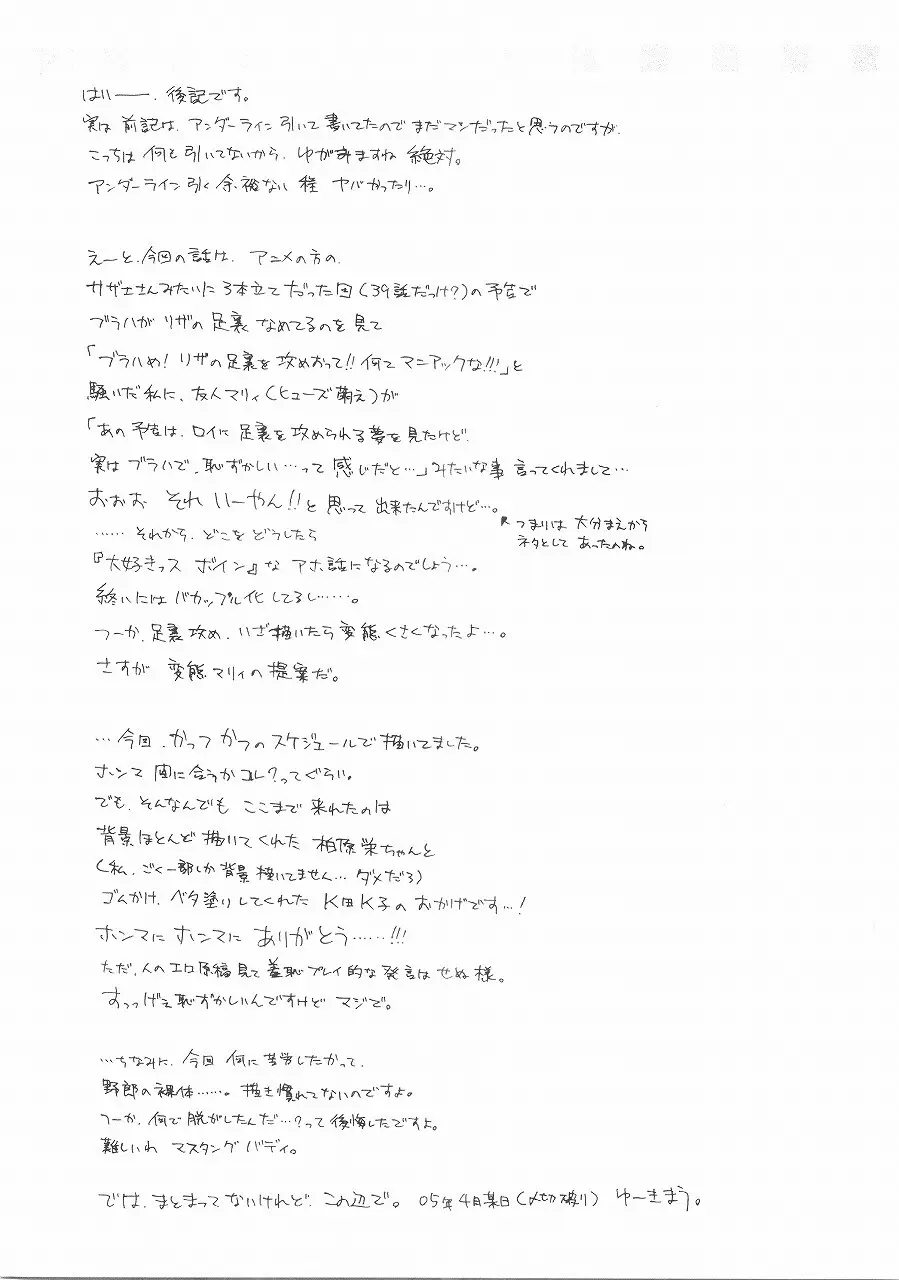 はい――、後記です。
実は 前記は、アンダーライン引いて書いてたのでまだマシだったと思うのですが、
こっちは 何も引いてないから、ゆがみますね 絶対。
アンダーライン引く余裕ない 程 ヤバかったり…。
えーと、今回の話は、アニメの方の、
サザエさんみたいに3本立てだった回(39話だっけ?)の予告で
ブラハがリザの足裏 なめてるのを見て
「ブラハめ!リザの足裏を攻めおって!!何てマニアックな!!!」と
騒いだ私に、友人マリィ(ヒューズ萌え)が
「あの予告は、ロイに足裏を攻められる夢を見たけど、
実はブラハで、恥ずかしい…って 感じだと…」みたいな事 言ってくれまして…
おぉお それ いーやん!!と思って出来たんですけど…。
つまりは 大分まえから
ネタとして あったのね。
…… それから、どこを どうしたら
『大好きっス ボイン』な アホ話になるのでしょう…。
終いには バカップル化してるし……。
つーか、足裏攻め、いざ描いたら変態くさくなったよ…。
さすが 変態マリィの提案だ。
…今回、かっつかつのスケジュールで描いてました。
ホンマ 間に合うかコレ?ってぐらい。
でも、そんなんでも ここまで 来れたのは
背景ほとんど描いてくれた 柏原栄ちゃんと
(私、ごく一部しか背景 描いてません… ダメだろ)
ゴムかけ、ベタ塗りしてくれた K田K子の おかげです…!
ホンマに ホンマに ありがとう……!!!
ただ、人のエロ原稿見て羞恥プレイ的な発言は せぬ様。
すっっげぇ恥ずかしいんですけど マジで。
…ちなみに、今回 何に苦労したかって、
野郎の裸体……。描き慣れてないのですよ。
つーか、何で脱がしたんだ…?って後悔したですよ。
難しいわ マスタングバディ。
では、まとまってないけれど、この辺で。 05年4月某日(〆切破り) ゆーきまう。